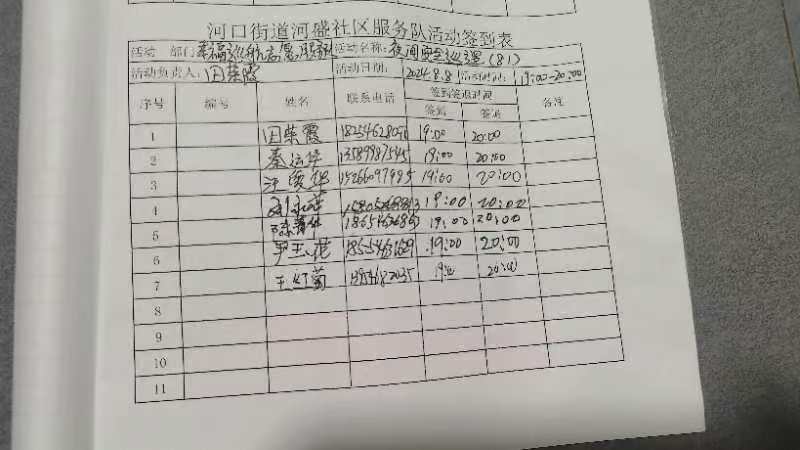 河口街道河盛社区服务队活动签到表
活动 部门 幸福巡航志愿服务队 活动名称: 夜间安全巡逻 (81)
活动负责人: 田荣霞 活动日期: 2024.8.8 活动时间: 19:00-20:00
序号 编号 姓名 联系电话 签到签退时间 备注
签到 签退
1 田荣霞 19:00 20:00
2 秦运华 13589987545 19:00 20:00
3 汪爱华 19:00 20:00
4 19:00 20:00
5 陈春华 19:00 20:00
6 尹玉花 19:00 20:00
7 王红菊 20:00
8
9
10
11